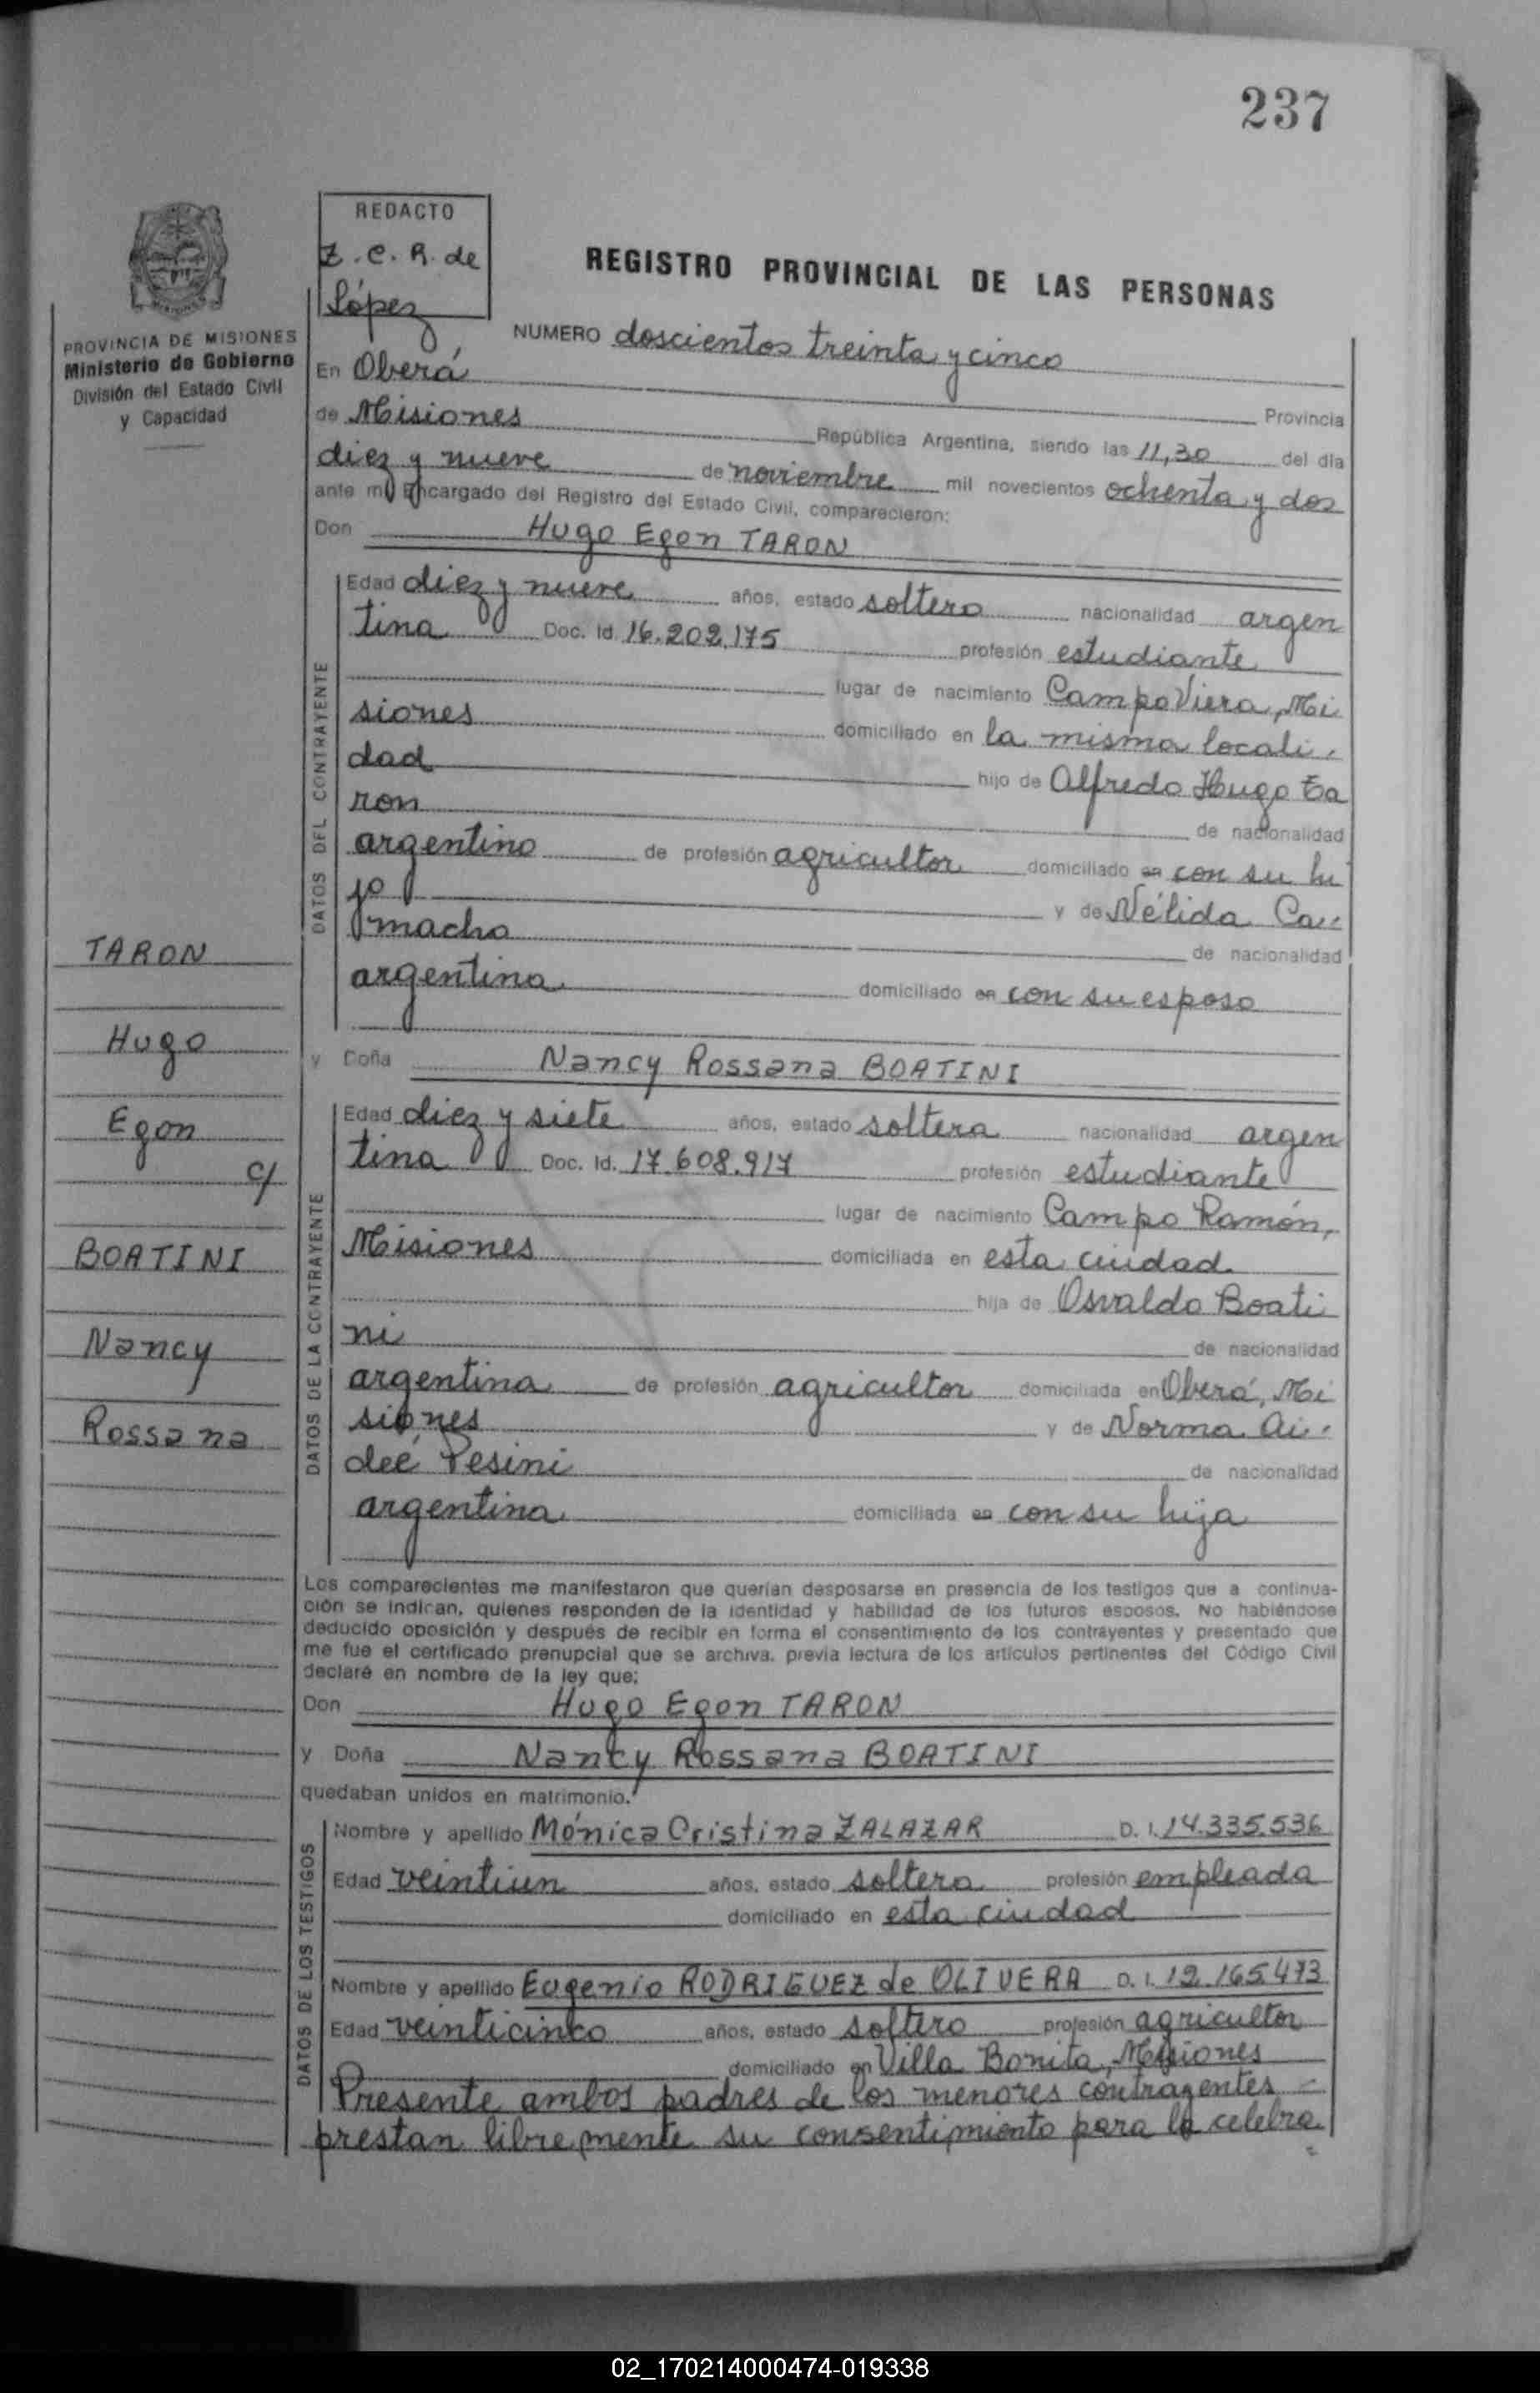 237
REDACTO
Z. C. R. de
López
REGISTRO PROVINCIAL DE LAS PERSONAS
MISIONES
PROVINCIA DE MISIONES
Ministerio de Gobierno
División del Estado Civil
y Capacidad
NUMERO doscientos treinta y cinco
En Oberá Provincia
de Misiones República Argentina, siendo las 11,30 del día
diez y nueve de noviembre mil novecientos ochenta y dos
ante mí Encargado del Registro del Estado Civil, comparecieron:
Don Hugo Egon TARON
DATOS DEL CONTRAYENTE
Edad diez y nueve años, estado soltero nacionalidad argen
tina Doc. Id. 16.202.175 profesión estudiante
lugar de nacimiento Campo Viera, Mi
siones domiciliado en la misma locali
dad hijo de Alfredo Hugo Ta
ron de nacionalidad
argentino de profesión agricultor domiciliado en con su hi
jo y de Nélida Ca
macho de nacionalidad
argentina domiciliado en con su esposo
y Doña Nancy Rossana BOATINI
DATOS DE LA CONTRAYENTE
Edad diez y siete años, estado soltera nacionalidad argen
tina Doc. Id. 17.608.917 profesión estudiante
lugar de nacimiento Campo Ramón,
Misiones domiciliada en esta ciudad
hija de Osvaldo Boati
ni de nacionalidad
argentina de profesión agricultor domiciliada en Oberá, Mi
siones y de Norma Ai
deé Pesini de nacionalidad
argentina domiciliada en con su hija
TARON
Hugo
Egon
c/
BOATINI
Nancy
Rossana
Los comparecientes me manifestaron que querían desposarse en presencia de los testigos que a continua-
ción se indican, quienes responden de la identidad y habilidad de los futuros esposos. No habiéndose
deducido oposición y después de recibir en forma el consentimiento de los contrayentes y presentado que
me fue el certificado prenupcial que se archiva, previa lectura de los artículos pertinentes del Código Civil
declaré en nombre de la ley que:
Don Hugo Egon TARON
y Doña Nancy Rossana BOATINI
quedaban unidos en matrimonio.
DATOS DE LOS TESTIGOS
Nombre y apellido Mónica Cristina ZALAZAR D. I. 14.335.536
Edad veintiun años, estado soltera profesión empleada
domiciliado en esta ciudad
Nombre y apellido Eugenio RODRIGUEZ de OLIVERA D. I. 12.165.473
Edad veinticinco años, estado soltero profesión agricultor
domiciliado en Villa Bonita, Misiones
Presente ambos padres de los menores contrayentes
prestan libremente su consentimiento para la celebra
02_170214000474-019338